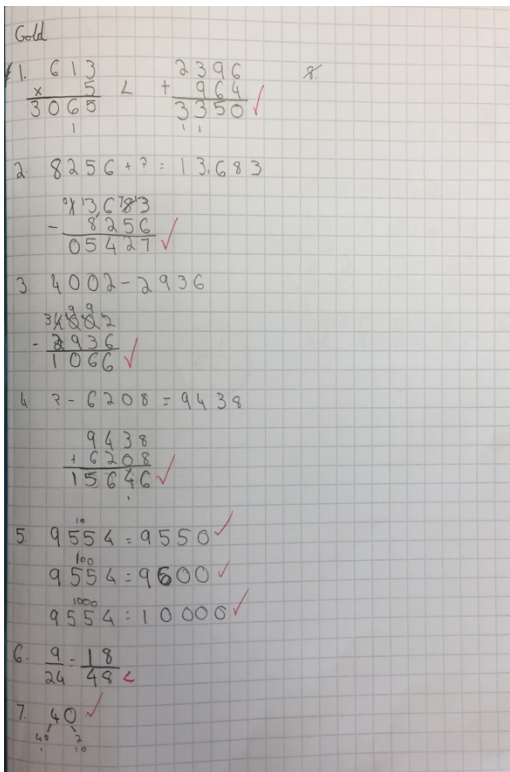 Gold
1. 613 2396
x 5 < + 964
3065 3350 ✓
1 1 1
2. 8256 + ? = 13,683
13683
- 8256
05427 ✓
3. 4002 - 2936
3 9 9
4002
- 2936
1066 ✓
4 ? - 6208 = 9438
9438
+ 6208
15646 ✓
1
10
5. 9554 = 9550 ✓
100
9554 = 9600 ✓
1000
9554 = 10000 ✓
6. 9/24 = 18/48
7. 40 ✓